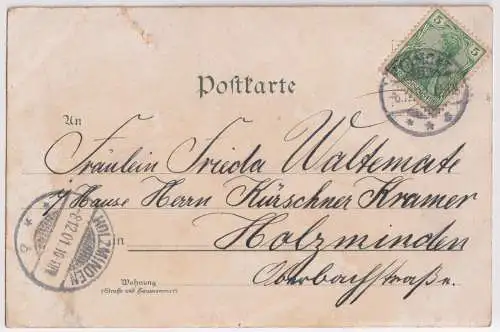 5 5
Postkarte
An
Fräulein Frieda Waltemate
Hause Herrn Kürschner Kramer
in Holzminden
Oberbachstraße.
Wohnung
(Straße und Hausnummer)
HOLZMINDEN
8.12.01.